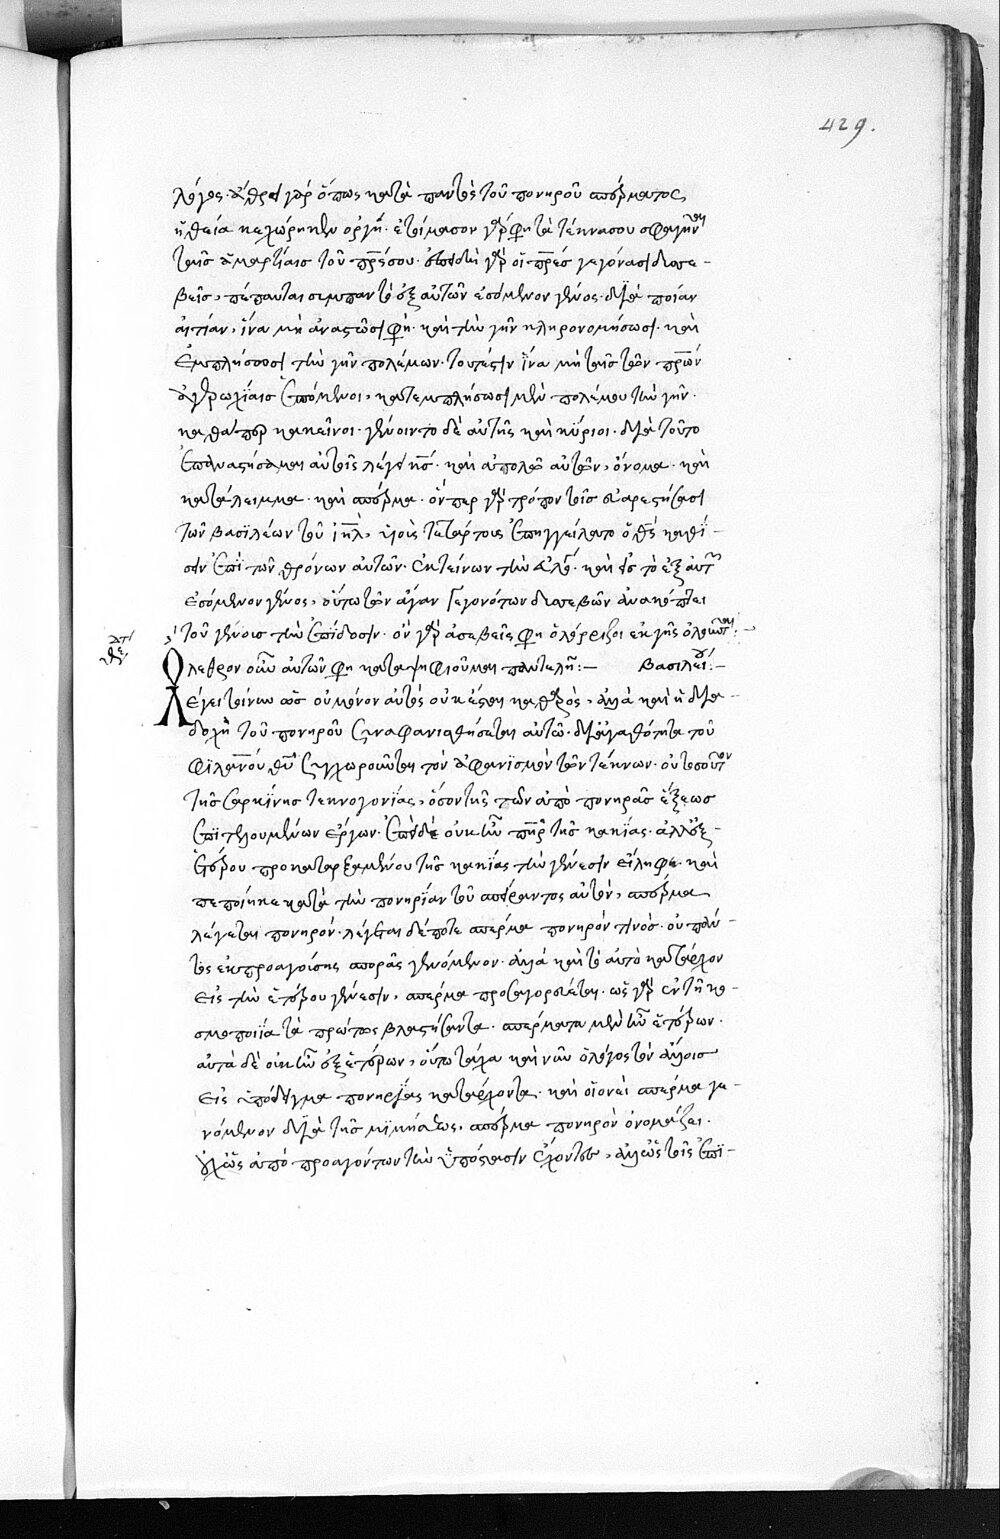 429.
λόγος. ἄθρει γὰρ ὅπως κατὰ παντὸς τοῦ πονηροῦ σπέρματος
ἡ θεία κεχώρηκεν ὀργή. ἑτοίμασον γάρ φησι τὰ τέκνα σου σφαγῆναι
ταῖς ἁμαρτίαις τοῦ πρς σου. ἐπειδὴ γὰρ οἱ πρες γεγόνασι δυσσε-
βεῖς, πέπαυται σύμπαν τὸ ἐξ αὐτῶν ἐσόμενον γένος. διὰ ποίαν
αἰτίαν, ἵνα μὴ ἀναστῶσι φησι. καὶ τὴν γῆν κληρονομήσωσι. καὶ
ἐμπλήσουσι τὴν γῆν πολέμων. τουτέστιν ἵνα μὴ ταῖς τῶν πρων
ἑπόμενοι, κατεμπλήσωσι μὲν πολέμου τὴν γῆν.
καθάπερ κἀκεῖνοι. γένοιντο δὲ αὐτῆς καὶ κύριοι. διὰ τοῦτο
ἐπαναστήσομαι αὐτοῖς λέγει κς. καὶ ἀπολῶ αὐτῶν, ὄνομα. καὶ
κατάλειμμα. καὶ σπέρμα. ὅνπερ γὰρ τρόπον τοῖς εὐαρεστήσασι
τῶν βασιλέων τοῦ ιηλ, υἱοὺς τετάρτους ἐπηγγείλατο ὁ θς καθί-
σειν ἐπὶ τῶν θρόνων αὐτῶν. ἐκτείνων τὴν καὶ εἰς τὸ ἐξ αὐτῶν
ἐσόμενον γένος, οὕτω τῶν ἄγαν γεγονότων δυσσεβῶν ἀνακόπτει
τοῦ γένους τὴν ἐπίδοσιν. ὅν γὰρ ἀσεβεῖς φησι ὁλόρριζοι ἐκ γῆς ὀλοῦνται:
Ὄλεθρον οὖν αὐτῶν φησι καταψηφιοῦμαι παντελῆ:— Βασιλείου:—
Λέγει τοίνυν ὡς οὐ μόνον αὐτὸς οὐκ ἔσται καθαρὸς, ἀλλὰ καὶ ἡ δια-
δοχὴ τοῦ πονηροῦ συναφανισθήσεται αὐτῶ. δι' ἀγαθότητα τοῦ
φιλανου θυ συγχωροῦντος τὸν ἀφανισμὸν τῶν τέκνων. οὐ τοσοῦτον
τῆς σαρκίνης τεκνογονίας, ὅσον τῆς τῶν ἀπὸ πονηρᾶς ἕξεως
ἐπιτελουμένων ἔργων. ἐπειδὴ οὐκ ἦν πηρ τῆς κακίας. ἀλλ' ἐξ
ἑτέρου προκαταρξαμένου τῆς κακίας τὴν γένεσιν εἴληφε. καὶ
πεποίηκε κατὰ τὴν πονηρίαν τοῦ σπείραντος αὐτὸν, σπέρμα
λέγεται πονηρόν. λέγεται δέ ποτε σπέρμα πονηρόν τινος. οὐ πάν-
τως ἐκ προαγούσης σπορᾶς γενόμενον. ἀλλὰ καὶ τὸ αὐτὸ κατάρχον
εἰς τὴν ἑτέρου γένεσιν, σπέρμα προσαγορεύεται. ὡς γὰρ ἐν τῇ κο-
σμοποιΐα τὰ πρώτως βλαστήσαντα. σπέρματα μὲν ἦν ἑτέρων.
αὐτὰ δὲ οὐκ ἦν ἐξ ἑτέρων, οὕτω τάχα καὶ νῦν ὁ λόγος τὸν ἄλλοις
εἰς ὑπόδειγμα πονηρίας κατάρχοντα. καὶ οἱονεὶ σπέρμα γε-
νόμενον διὰ τῆς μιμήσεως, σπέρμα πονηρὸν ὀνομάζει.
οὐχ ὡς ἀπὸ προαγόντων τὴν ὑπόστασιν ἔχοντα, ἀλλ' ὡς τοῖς ἐπι-